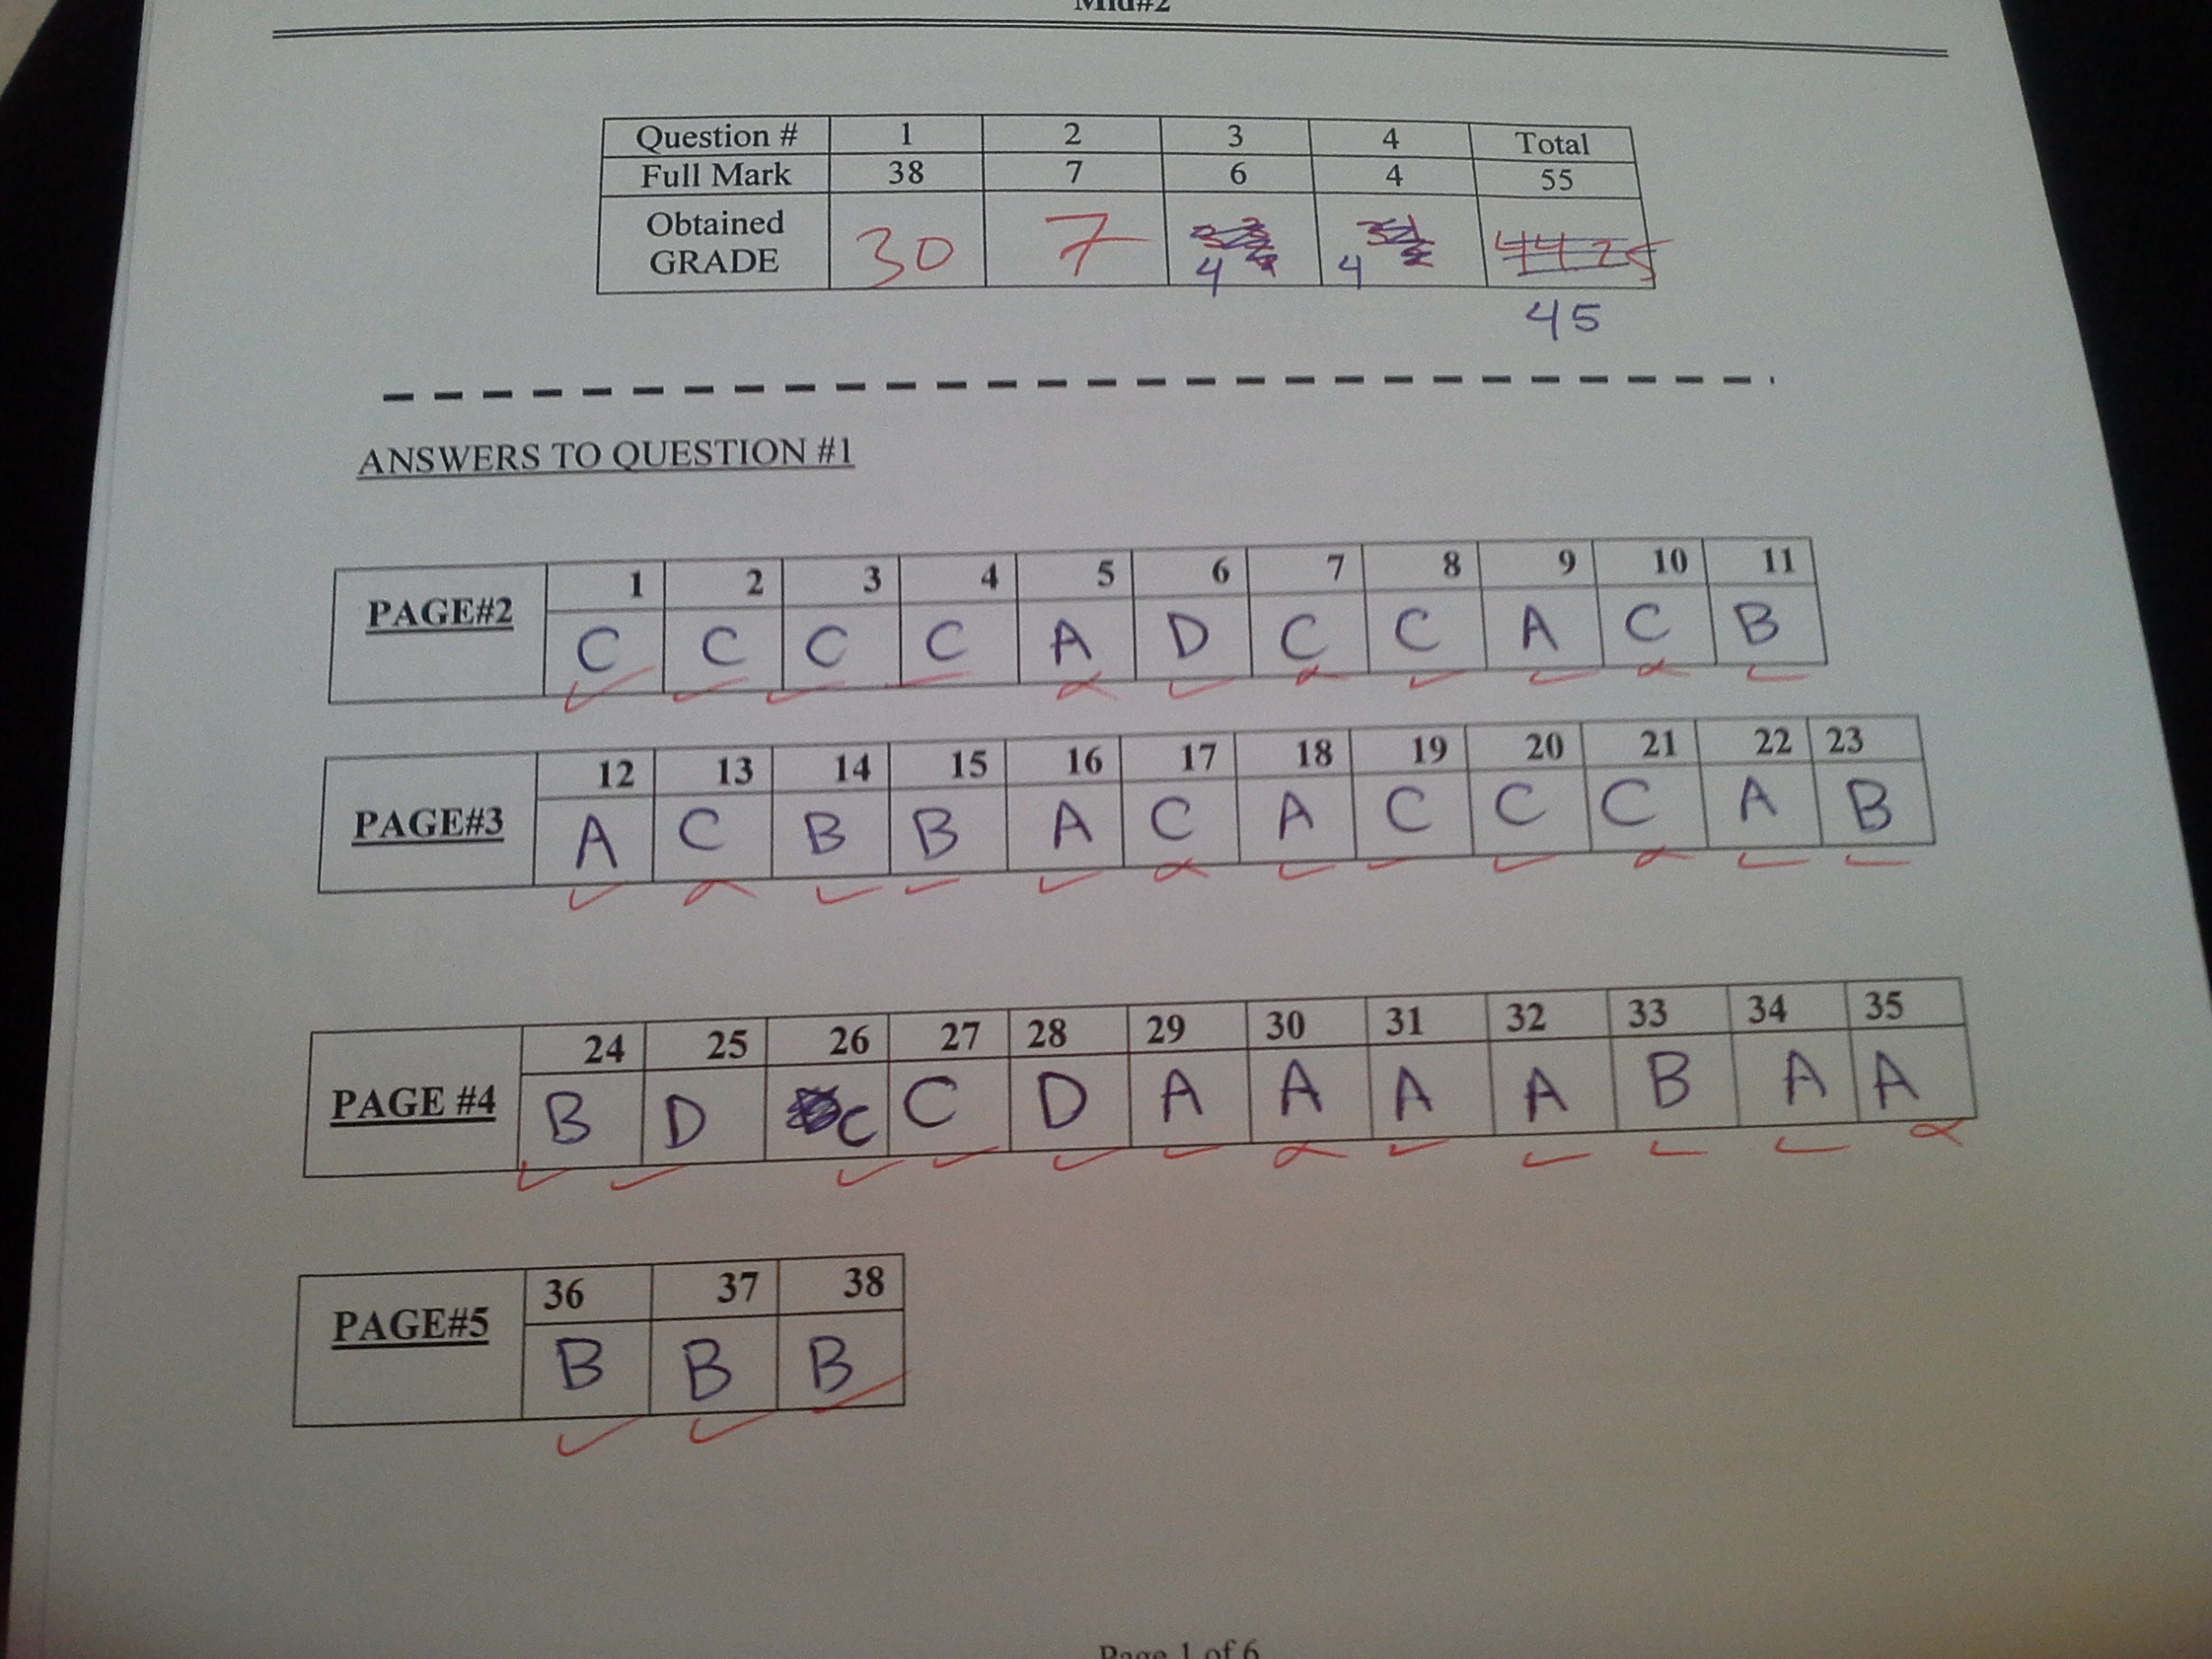 Mid#2
Question # 1 2 3 4 Total
Full Mark 38 7 6 4 55
Obtained
GRADE 30 7 4 4 44.25
45
ANSWERS TO QUESTION #1
PAGE#2 1 2 3 4 5 6 7 8 9 10 11
C C C C A D C C A C B
PAGE#3 12 13 14 15 16 17 18 19 20 21 22 23
A C B B A C A C C C A B
PAGE #4 24 25 26 27 28 29 30 31 32 33 34 35
B D C C D A A A A B A A
PAGE#5 36 37 38
B B B
Page 1 of 6